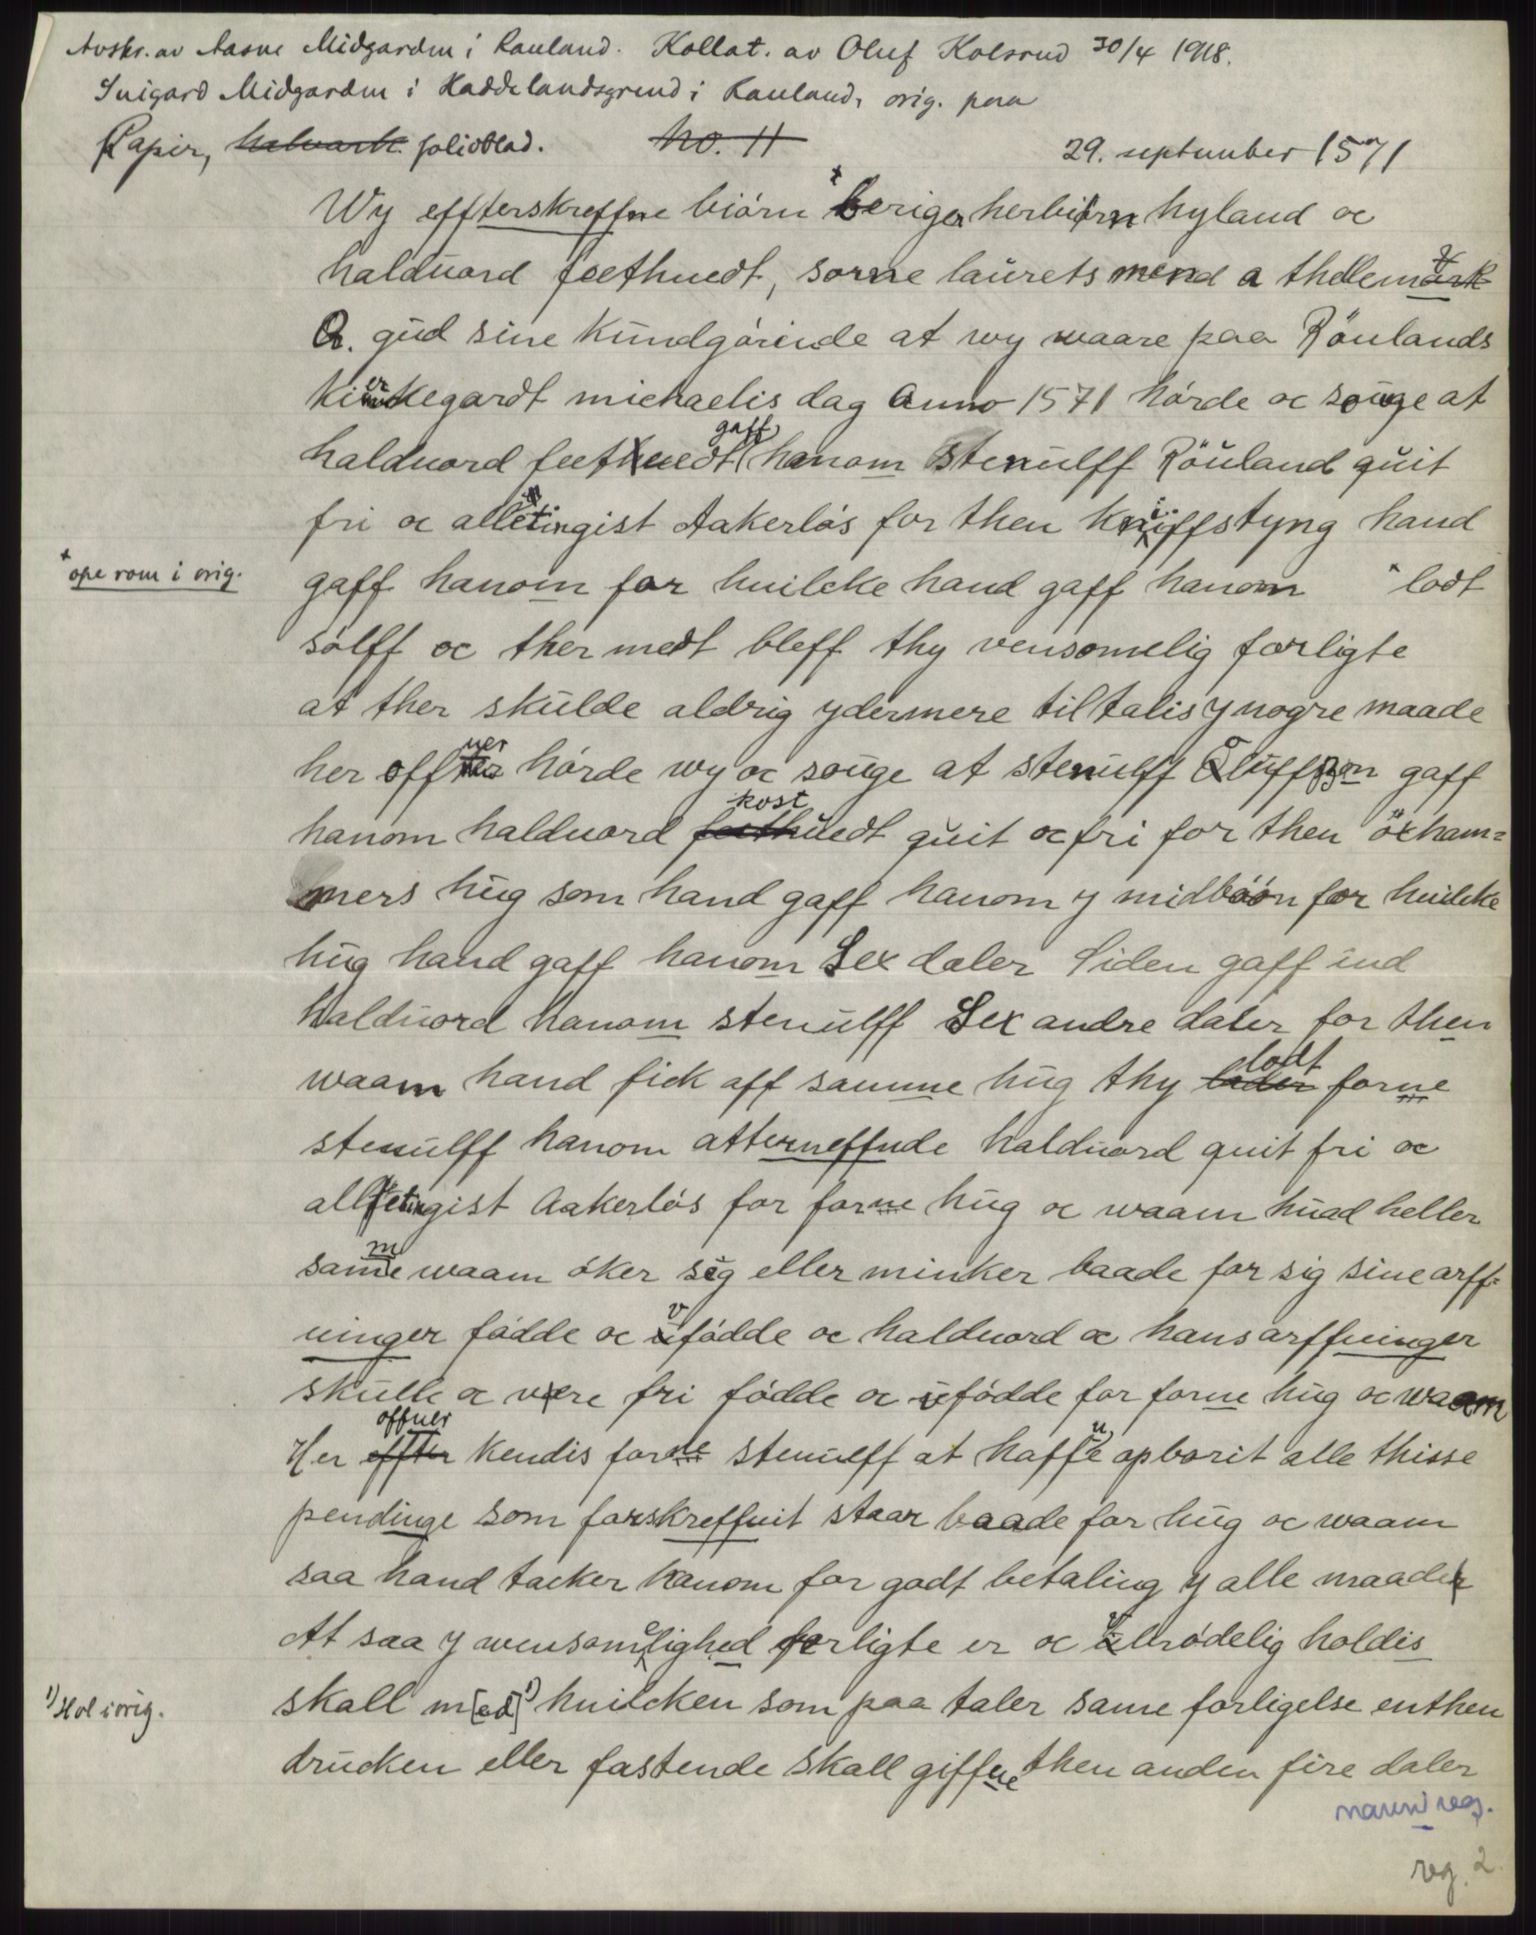 Avskr. av Aasne Midgarden i Rauland. Kollat. av Oluf Kolsrud 30/4 1918.
Snigard Midgarden i Haddelandsgrend i Rauland, orig. paa
Papir, halvark. folioblad. No. 11 29. september 1571
Wy effterskreffne biörn * beriger herbiörn hyland oc
halduord feethuedt, sorne laurets mend a thellemark
A. gud sine kundgörinde at wy waare paa Röulands
kierkegardt michaelis dag Anno 1571 hörde oc souge at
halduord feethuedt gaff hanom stenulff Röuland quit
fri oc alletingist Aakerlös for then kniffstyng hand
* ope rom i orig.
gaff hanom for huilcke hand gaff hanom * lodt
sölff oc ther medt bleff thy vensomelig forligte
at ther skulde aldrig ydermere tiltalis y nogre maade
her offuer hörde wy oc souge at stenulff Oluffson gaff
hanom halduord kosthuedt quit oc fri for then öxham=
mers hug som hand gaff hanom y midböön for huilcke
hug hand gaff hanom Sex daler Siden gaff ind
halduord hanom stenulff Sex andre daler for then
waam hand fick aff samme hug thy lader lodt forne
stenulff hanom atterneffnde halduord quit fri oc
alletingist Aakerlös for forne hug oc waam huad heller
samme waam öker sig eller minker baade for sig sine arff=
uinger födde oc vfödde oc halduord oc hans arffuinger
skulle oc vere fri födde oc ufödde for forne hug oc waam
Her effter offuer kendis forne stenulff at haffue opborit alle thisse
pendinge som forskreffuit staar baade for hug oc waam
saa hand tacker hanom for godt betaling y alle maade
At saa y wensomelighed forligte er oc vbrödelig holdis
1) Hol i orig.
skall m[ed]1) huilcken som paa taler same forligelse enthen
drucken eller fastende skall giffue then anden fire daler
navni reg.
reg. 2